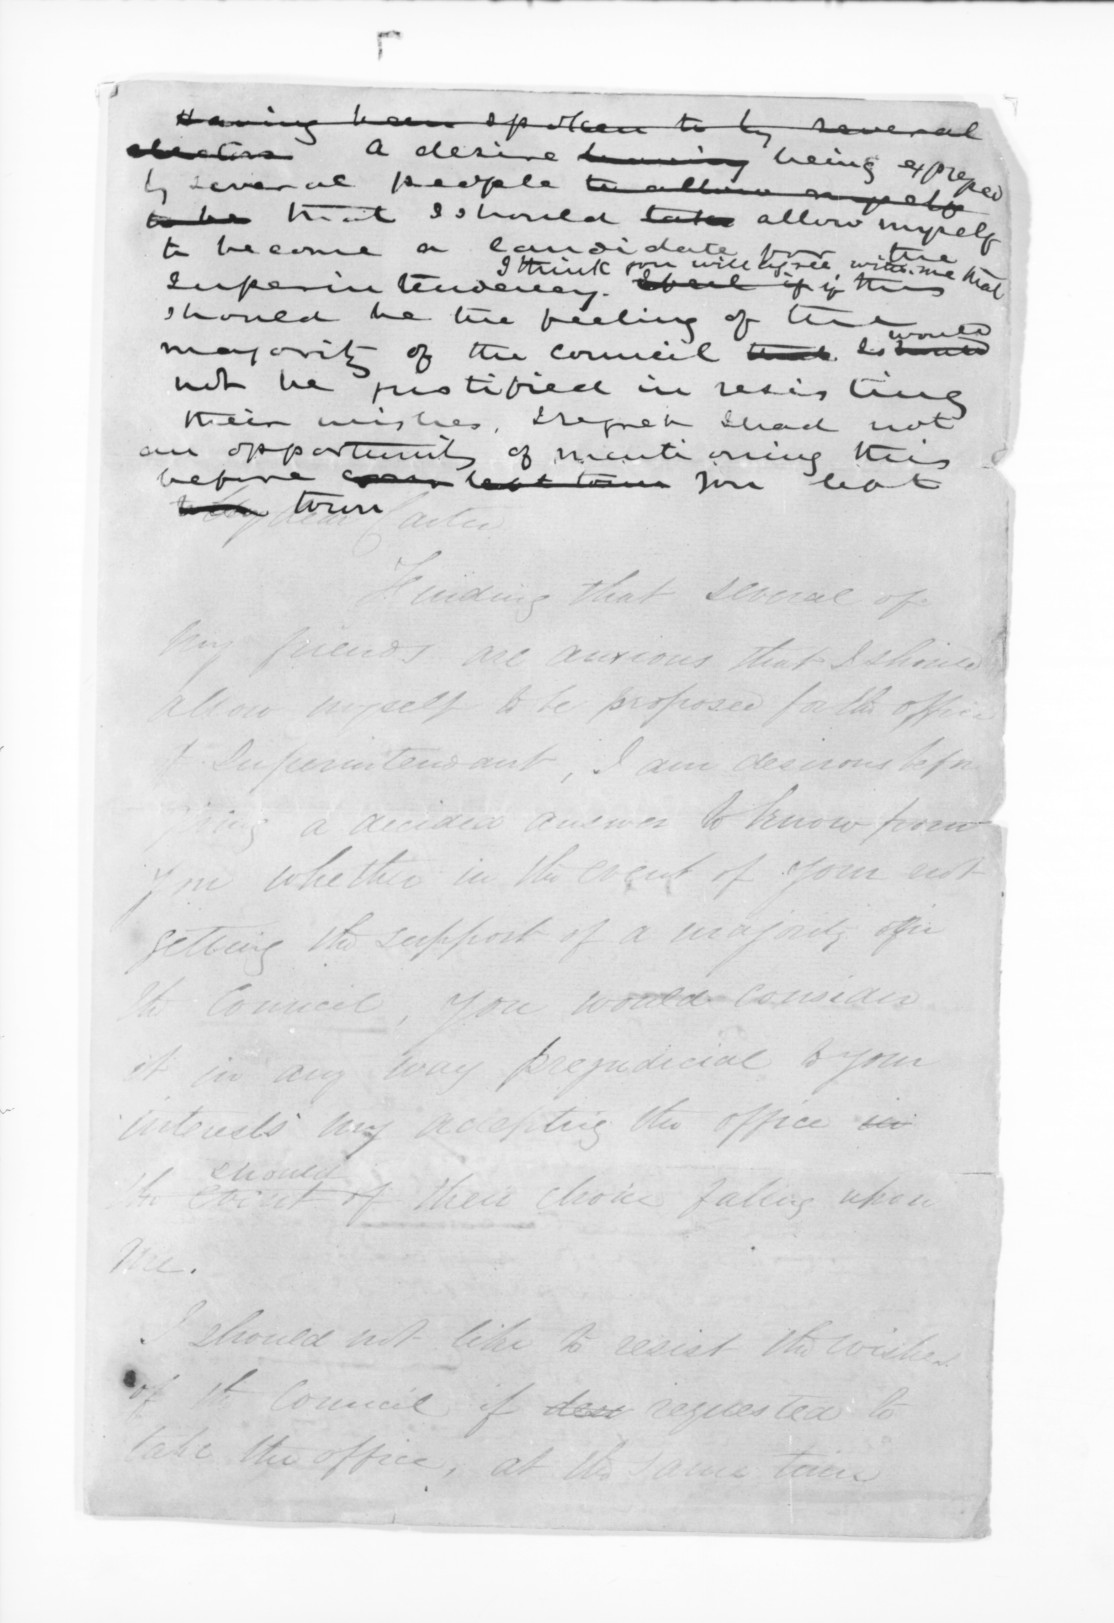 Having been spoken to by several
electors A desire having being expressed
by several people to allow myself
to be that I should take allow myself
to become a candidate for the
I think you will agree with me that
Superintendency. if this
should be the feeling of the
would
majority of the council that I should
not be justified in resisting
their wishes. I regret I had not
an opportunity of mentioning this
before left town you left
town
My dear Carter
Finding that several of
my friends are anxious that I should
allow myself to be proposed for the office
of Superintendant, I am desirous before
giving a decided answer to know from
you whether in the event of your not
getting the support of a majority in
the Council, you would consider
it in any way prejudicial to your
interests my accepting the office in
should
the event of their choice falling upon
me.
I should not like to resist the wishes
of the Council if requested to
take the office, at the same time